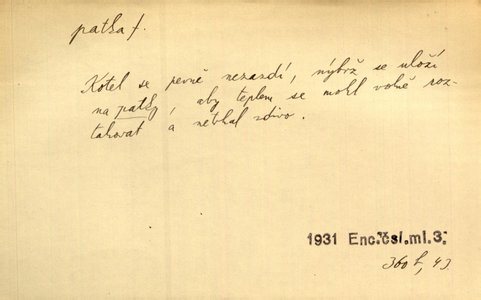 patka f.
Kotel se pevně nezazdí, nýbrž se uloží
na patky, aby teplem se mohl volně roz-
tahovat a netrhal zdivo.
1931 Enc.čsl.ml.3.
360 b, 43